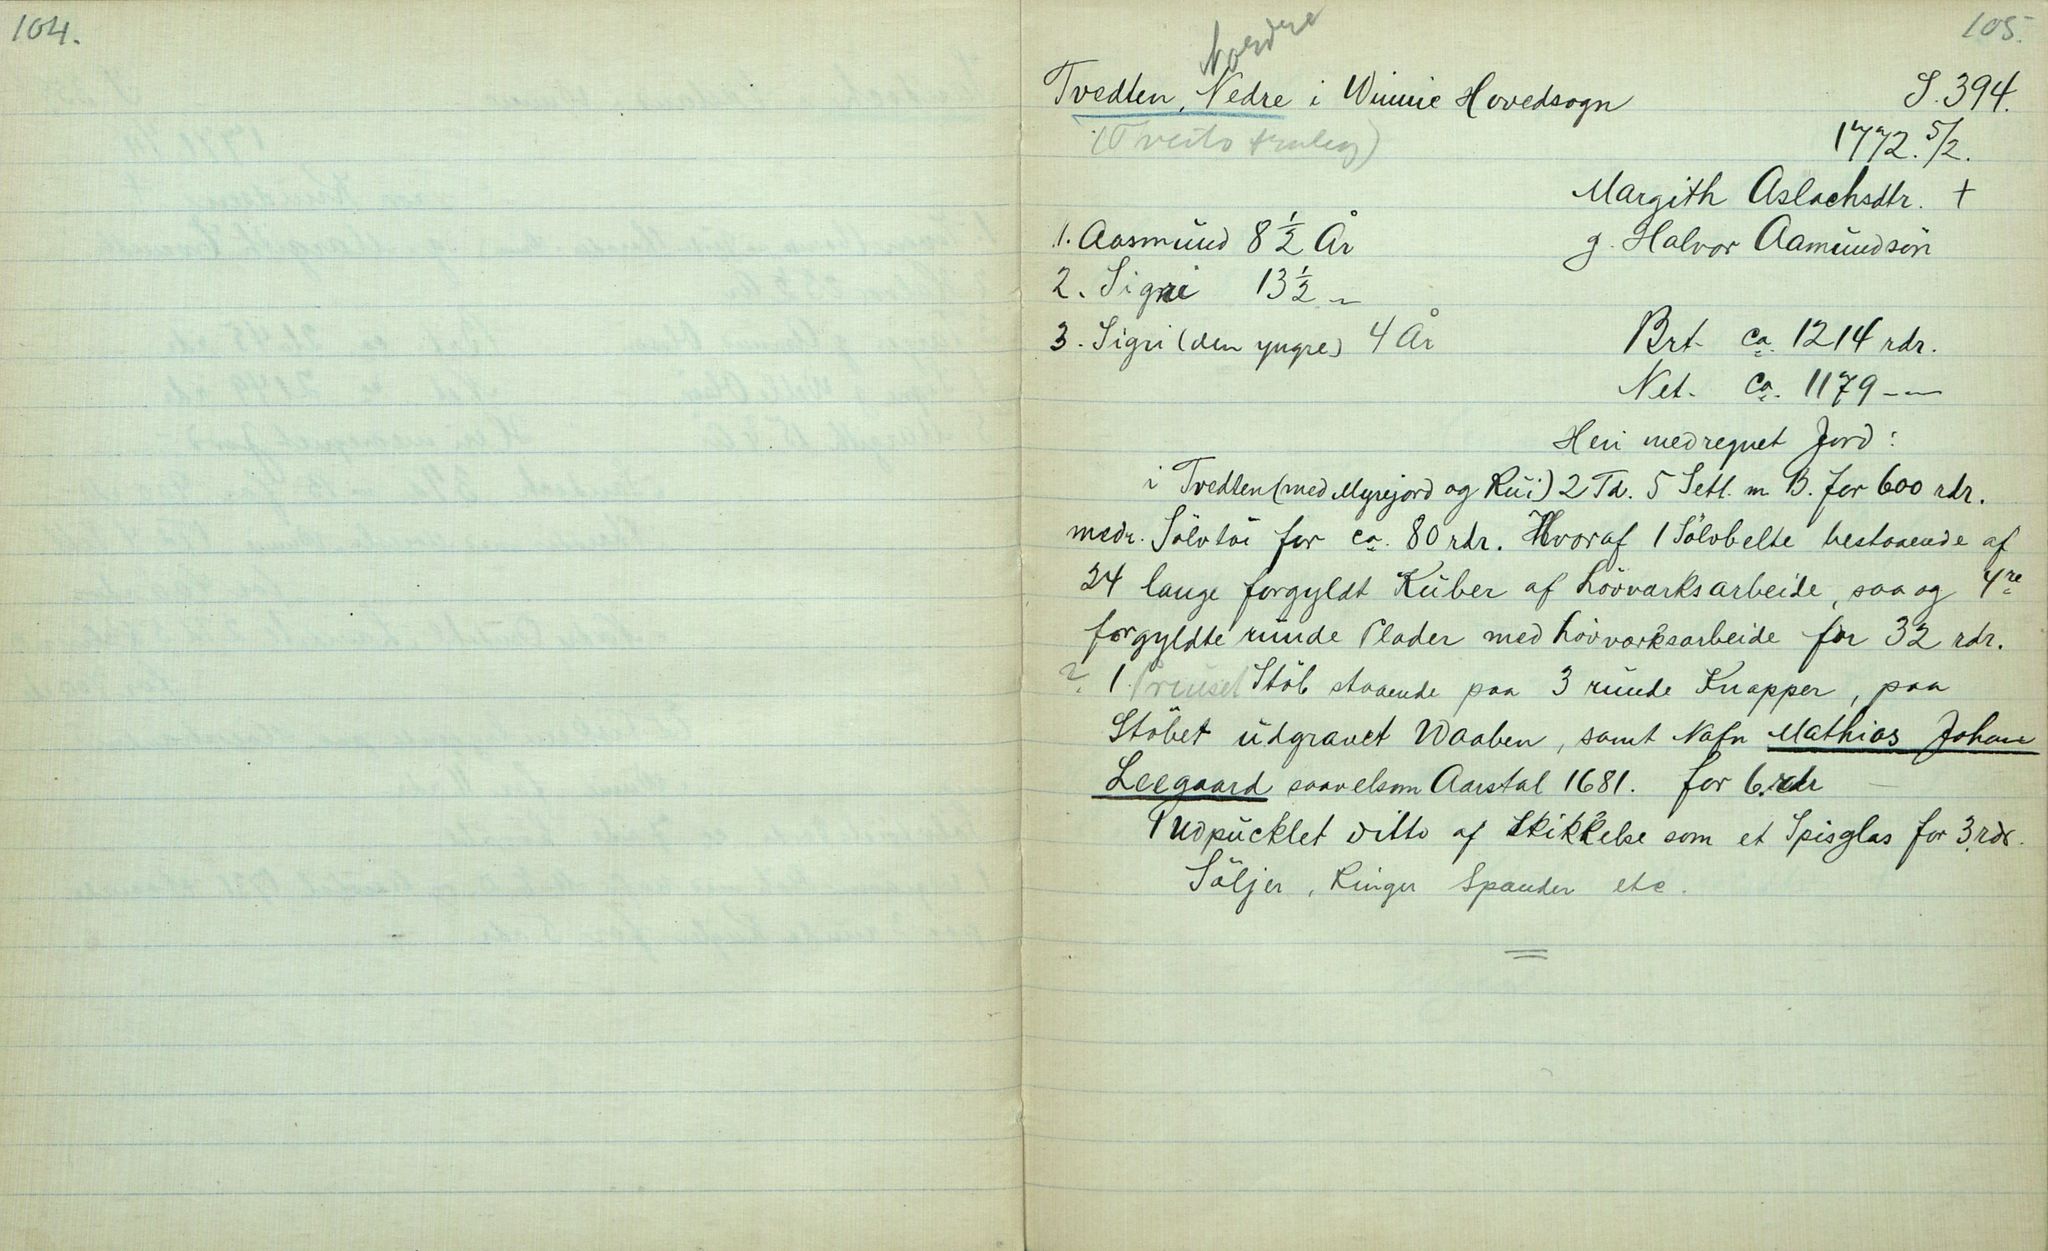 104.
105.
Nordre
Tvedten, Nedre i Winnie Hovedsogn S. 394.
(Tveito truleg) 1772. 5/2.
Margith Aslachsdtr. +
1. Aasmund 8 1/2 År g. Halvor Aamundsøn
2. Signe 13 1/2 "
3. Sigri (den yngre) 4 År Brt. ca. 1214 rdr.
Net. ca. 1179 -"-
Heri medregnet Jord:
i Tvedten (med Myrejord og Rui) 2 Td. 5 Setl. m B. for 600 rdr.
medr. Sölvtöi for ca. 80 rdr. Hvoraf 1 Sölvbelte bestaaende af
24 lange forgyldt Kuber af Lövvarksarbeide, saa og 4re
forgyldte runde Plader med Lövvarksarbeide for 32 rdr.
? 1. Stöb staaende paa 3 runde Knapper, paa
Stöbet udgravet Waaben, samt Nafn Mathias Johan
Leegaard saavelsom Aarstal 1681. for 6. rdr
1 Udpucklet ditto af Skikkelse som et Spisglas for 3 rdr.
Söljer, Ringer Spander etc.